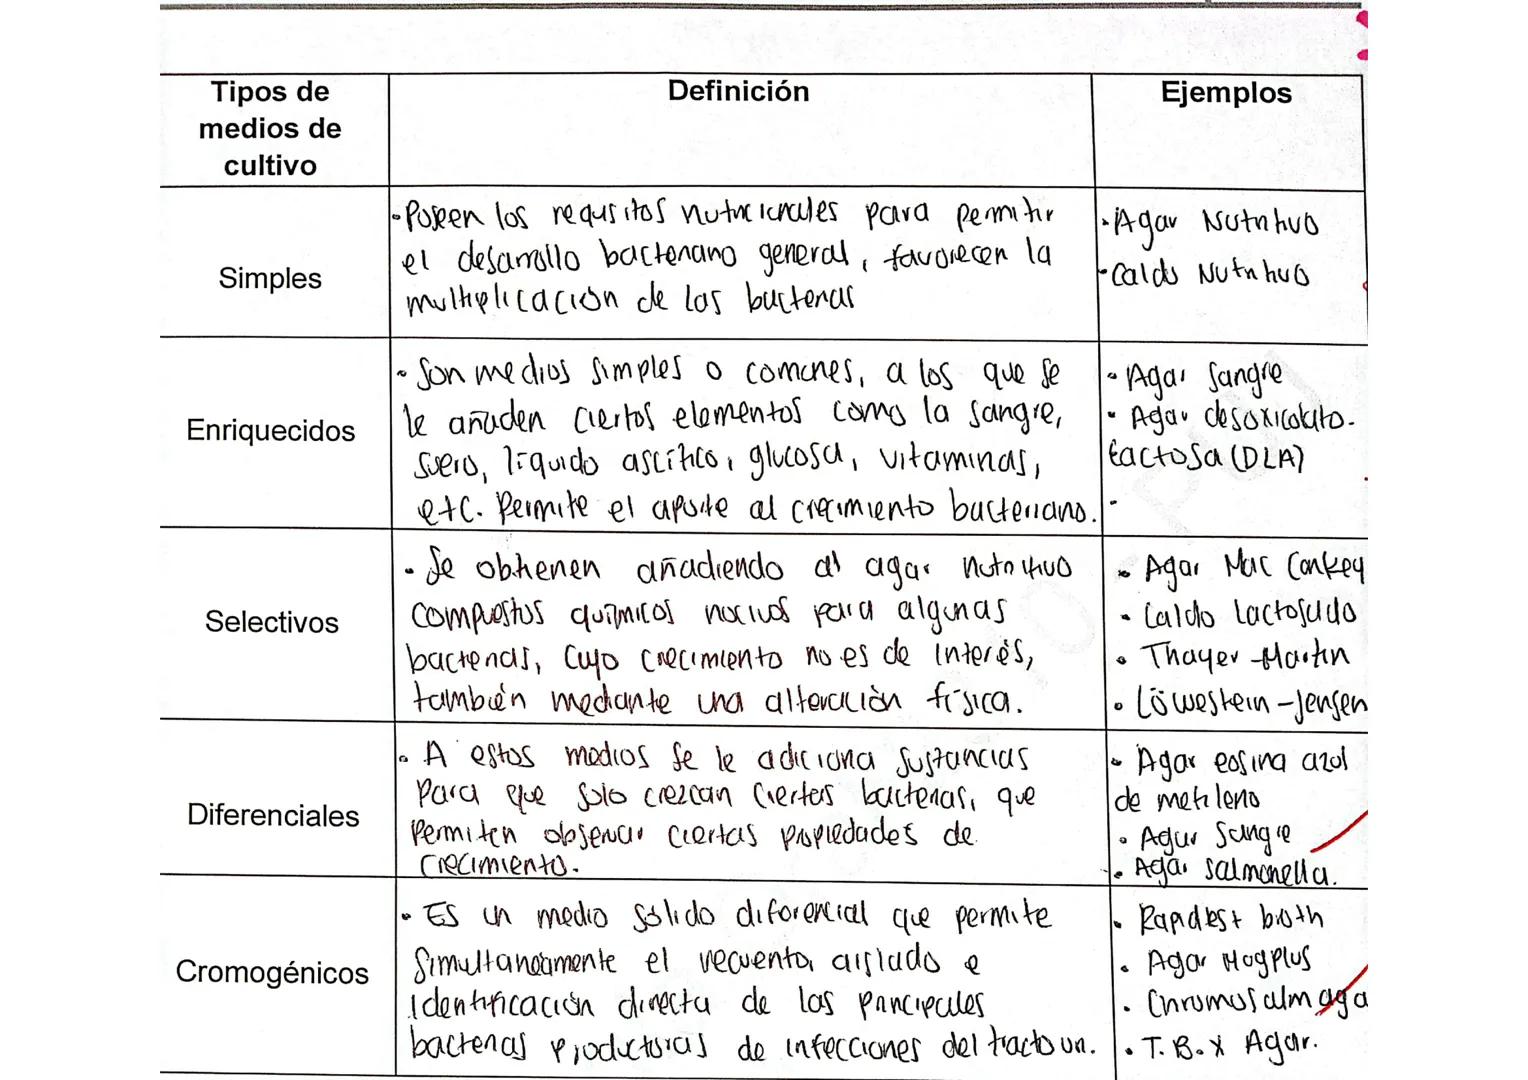 Tipos de medios de cultivo
Definición
Ejemplos
Simples
• Poseen los requisitos nutricionales para permitir
el desarrollo bacteriano general, favorecen la
multiplicación de las bacterias
• Agar Nutritivo
• Caldo Nutritivo
Enriquecidos
• Son medios simples o comunes, a los que se
le añaden ciertos elementos como la sangre,
suero, líquido ascítico, glucosa, vitaminas,
etc. Permite el aporte al crecimiento bacteriano.
• Agar Sangre
• Agar desoxicolato-
Lactosa (DLA)
•
Selectivos
• Se obtienen añadiendo al agar nutritivo
compuestos químicos nocivos para algunas
bacterias, cuyo crecimiento no es de interés,
también mediante una alteración física.
• Agar Mac Conkey
• Caldo Lactosado
• Thayer-Martin
• Löwestein-Jensen
Diferenciales
• A estos medios se le adiciona sustancias
para que solo crezcan ciertas bacterias, que
permiten observar ciertas propiedades de
crecimiento.
• Agar eosina azul
de metileno
• Agar Sangre
• Agar salmonella.
Cromogénicos
• Es un medio sólido diferencial que permite
simultaneamente el recuento, aislado e
identificación directa de las principales
bacterias productoras de infecciones del tracto uri.
• Rapidest broth
• Agar Hogplus
• Chromosalm aga
• T.B.X Agar.